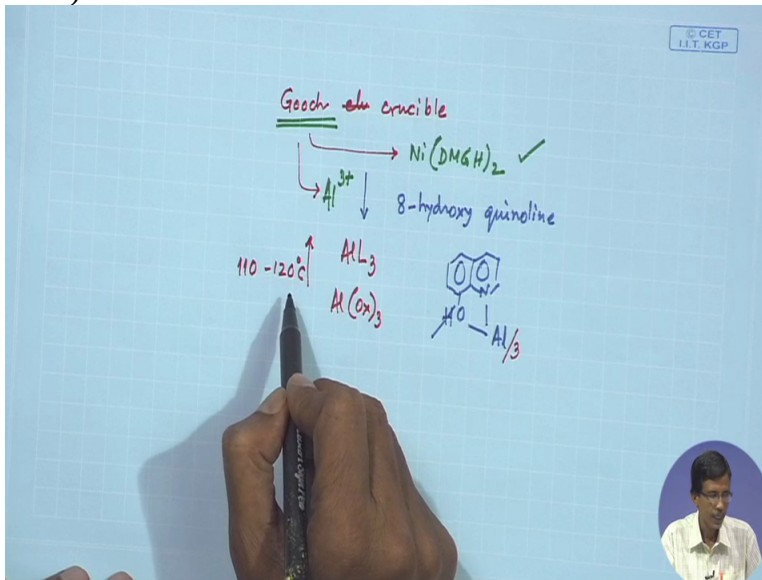 © CET
I.I.T. KGP
Gooch crucible
Ni(DMGH)2 ✓
Al3+
8-hydroxy quinoline
110-120°C
AlL3
Al(Ox)3
N
HO
Al/3